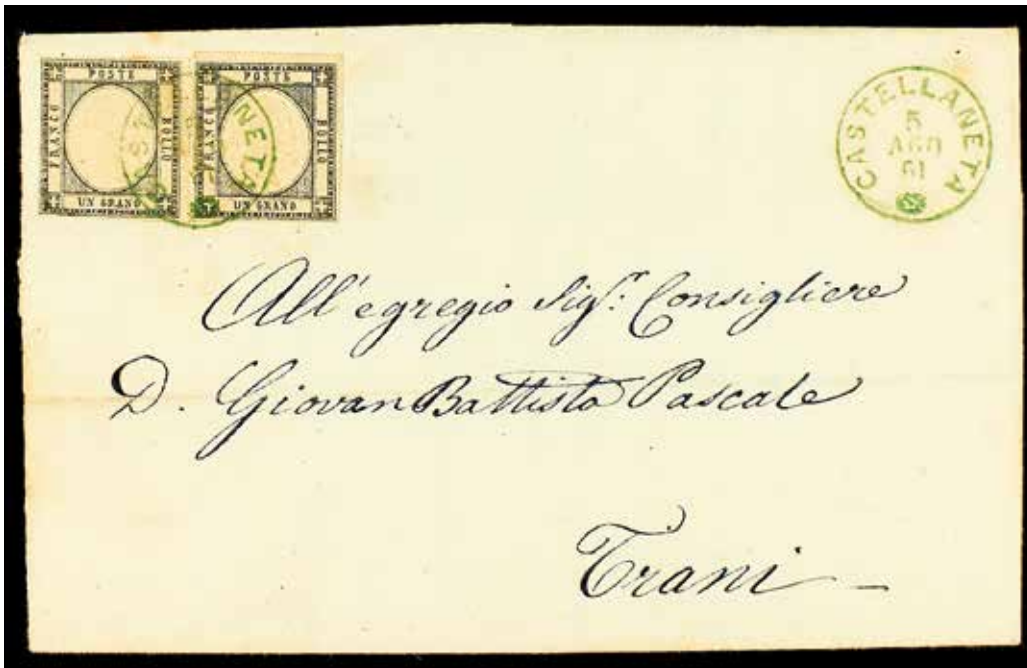 POSTE
FRANCO
BOLLO
UN GRANO
POSTE
FRANCO
BOLLO
UN GRANO
NETA
CASTELLANETA
5
AGO
61
All'egregio Sigr: Consigliere
D. Giovan Battista Pascale
Trani